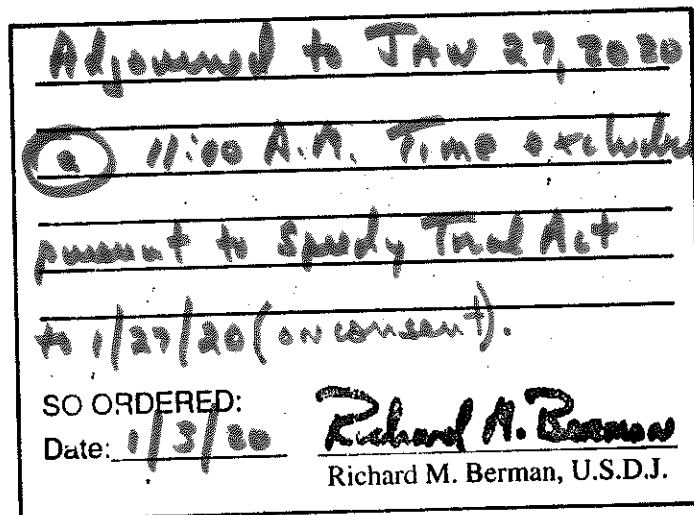 Adjourned to JAN 27, 2020
@ 11:00 A.M. Time excluded
pursuant to Speedy Trial Act
to 1/27/20 (on consent).
SO ORDERED:
Date: 1/3/20 Richard M. Berman
Richard M. Berman, U.S.D.J.